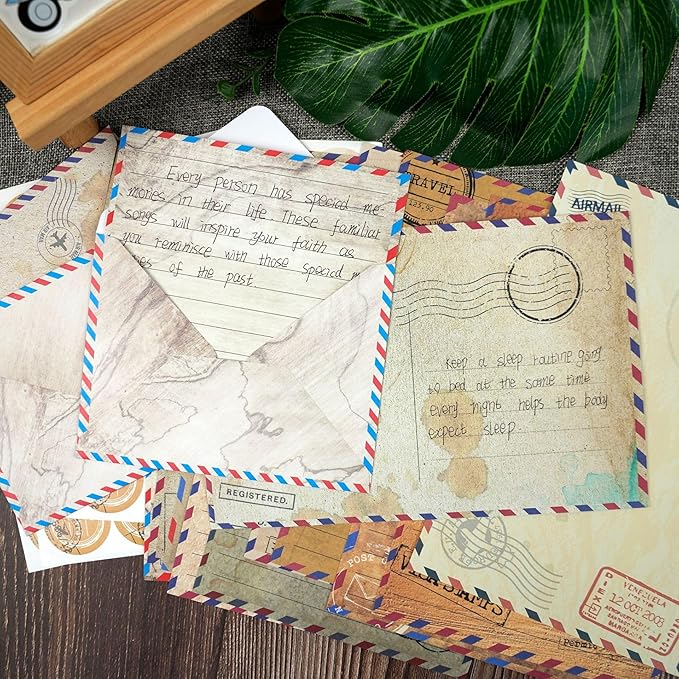 Every person has special me-
mories in their life. These familiar
songs will inspire your faith as
you reminisce with those special m
ies of the past.
TRAVEL
123.90
AIRMAIL
keep a sleep routine going
to bed at the same time
every night helps the body
expect sleep.
REGISTERED.
POST
VISA STAMPS
VENEZUELA
12 OCT 2003